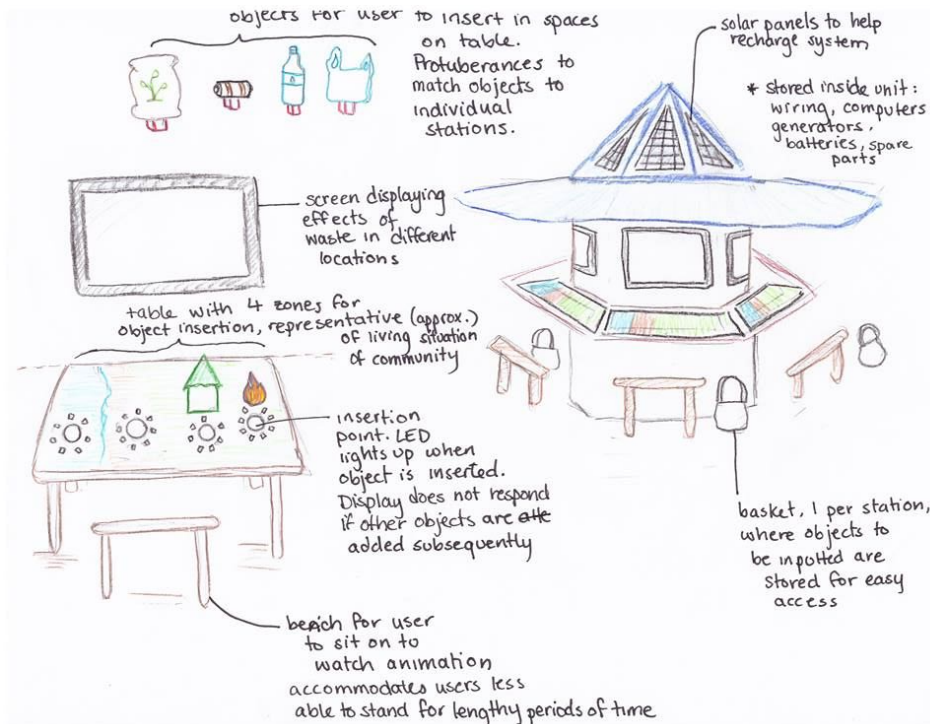 objects for user to insert in spaces
on table.
Protuberances to
match objects to
individual
stations.
solar panels to help
recharge system
* stored inside unit:
wiring, computers
generators,
batteries, spare
parts
screen displaying
effects of
waste in different
locations
table with 4 zones for
object insertion, representative (approx.)
of living situation
of community
insertion
point. LED
lights up when
object is inserted.
Display does not respond
if other objects are
added subsequently
basket, 1 per station,
where objects to
be inputted are
stored for easy
access
bench for user
to sit on to
watch animation
accommodates users less
able to stand for lengthy periods of time